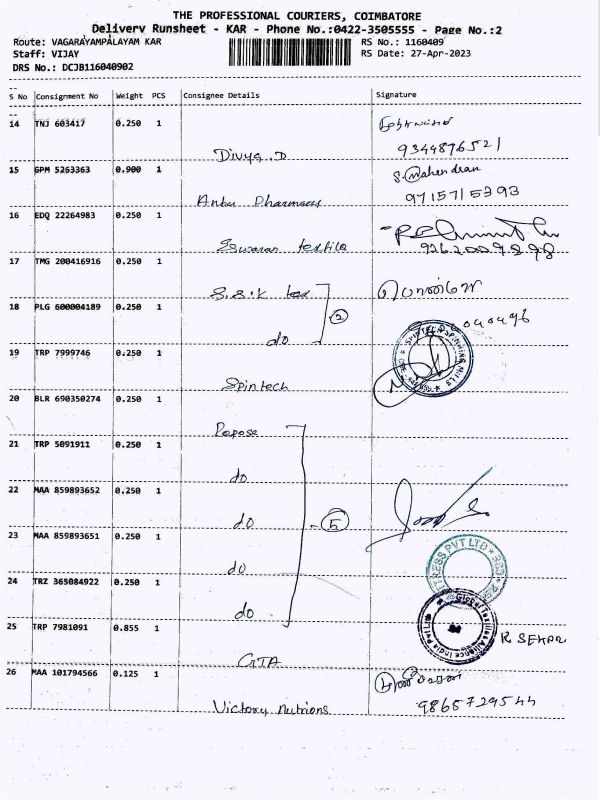 THE PROFESSIONAL COURIERS, COIMBATORE
Delivery Runsheet - KAR - Phone No.:0422-3505555 - Page No.:2
Route: VAGARAYAMPALAYAM KAR
RS No.: 1160409
Staff: VIJAY
RS Date: 27-Apr-2023
DRS No.: DCJB116040902
S No Consignment No Weight PCS Consignee Details Signature
14 TNJ 603417 0.250 1
Divya.D 9344876521
15 GPM 5263363 0.900 1 S.Mahendran
Anbu Pharmacy 9715715393
16 EDQ 22264983 0.250 1
Eswaran textile
17 TMG 200416916 0.250 1
S.S.K tex
18 PLG 600004189 0.250 1 2
do
19 TRP 7999746 0.250 1 SPINTECH SPINNING MILLS
Spintech
20 BLR 690350274 0.250 1
Repose
21 TRP 5091911 0.250 1
do
22 MAA 859893652 0.250 1
do 5
23 MAA 859893651 0.250 1
do TRESS PVT LTD
24 TRZ 365084922 0.250 1
do
25 TRP 7981091 0.855 1 Global Textiles Alliance India Pvt Ltd
GTA R SEKAR
26 MAA 101794566 0.125 1
Victory nutrions 9865729544